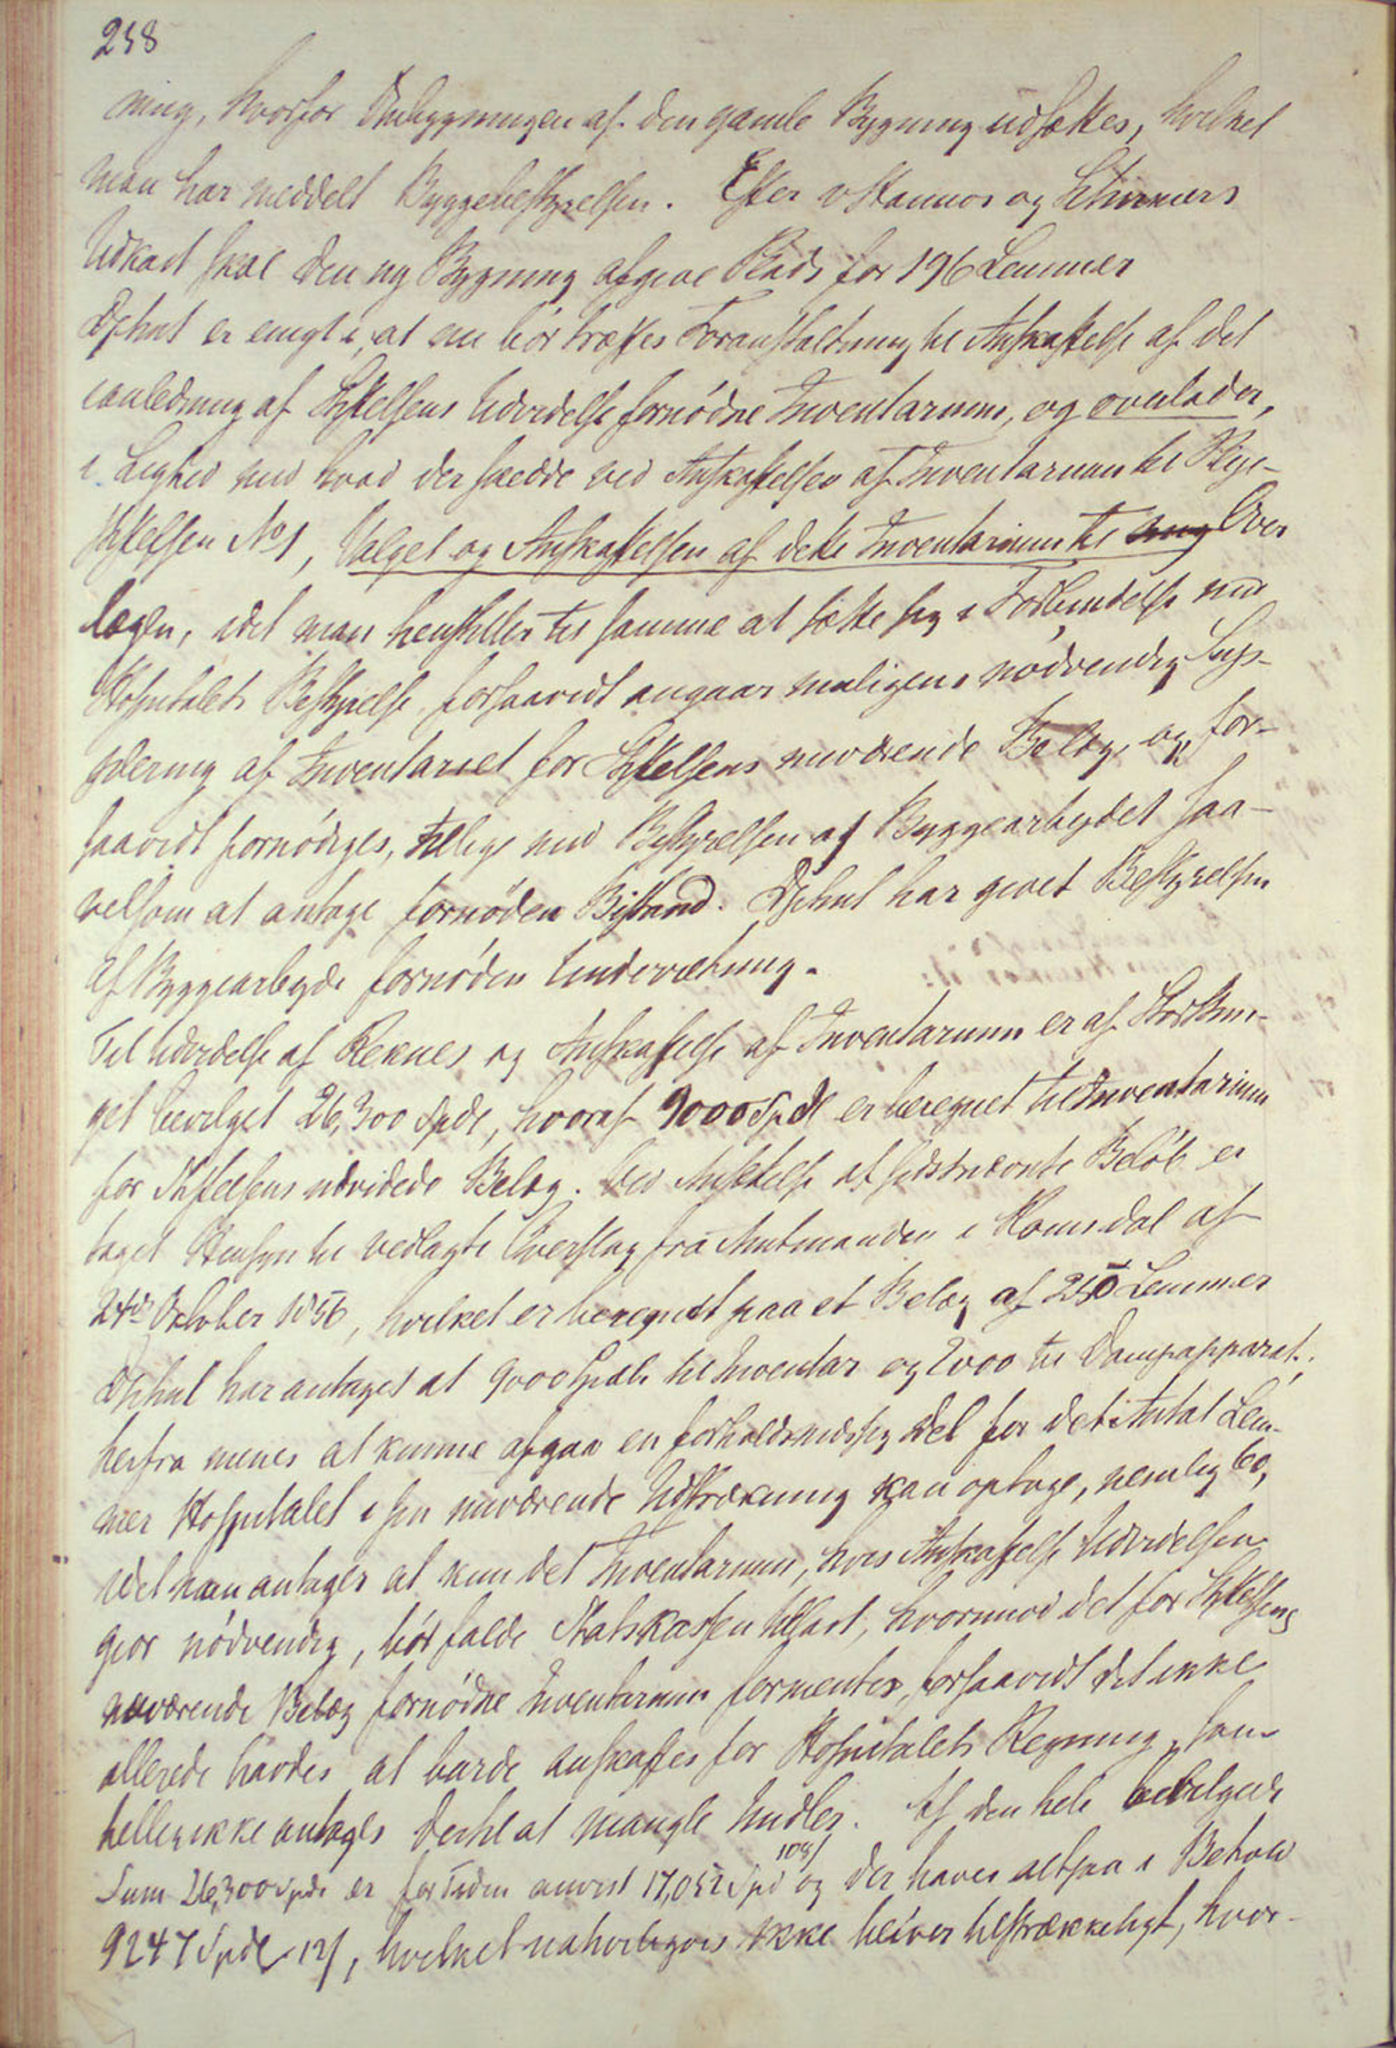 238
ning, hvorfor Ombygningen af den gamle Bygning udsættes, hvilket
man har meddelt Byggebestyrelsen. Efter v Hannos og Schirmers
Udkast skal den ny Bygning afgive Plads for 196 Lemmer
Dphnt er enigt i, at nu bør træffes Foranstaltning til Anskaffelse af det
ianledning af Stiftelsens Udvidelse fornødne Inventarium, og overlader,
i Lighed med hvad der skedde ved Anskaffelsen af Inventarium til Pleje-
stiftelsen No 1, Valget og Anskaffelsen af dette Inventarium til Over
lægen, idet man henstiller til samme at sætte sig i Forbindelse med
Hospitalets Bestyrelse, forsaavidt angaar muligens nødvendig Sup-
plering af Inventariet for Stiftelsens nuværende Belæg, og, for-
saavidt fornødiges, tillige med Bestyrelsen af Byggearbejdet saa-
velsom at antage fornøden Bistand. Dphnt har givet Bestyrelsen
af Byggearbejde fornøden Underretning.
Til Udvidelse af Reknes og Anskaffelse af Inventarium er af Storthin-
get bevilget 26,300 Spdl, hvoraf 9000 Spdl er beregnet til Inventarium
for Stiftelsens udvidede Belæg. Ved Ansættelse af sidstnævnte Beløb er
taget Hensyn til vedlagte Overslag fra Amtmanden i Romsdal af
24de Oktober 1856, hvilket er beregnet paa et Belæg af 250 Lemmer
Dphnt har antaget at 9000 Spdlr til Inventar og 2000 til Dampapparat,
herfra menes at kunne afgaa en forholdsmæssig Del for det Antal Lem-
mer Hospitalet i sin nuværende Udstrækning kan optage, nemlig 60,
idet man antager at kun det Inventarium, hvis Anskaffelse Udvidelsen
gjør nødvendig, bør falde Statskassen tillast, hvorimod det for Stiftelsens
nuværende Belæg fornødne Inventarium formentes, forsaavidt det ikke
allerede havdes at burde anskaffes for Hospitalets Regning, som
heller ikke antages dertil at mangle Midler. Af den hele bevilgede
Sum 26,300 Spdl er for Tiden anvist 17,052 Spd 108/ og der haves altsaa i Behold
9247 Spdl 12/, hvilket naturligvis ikke bliver tilstrækkeligt, hvor-